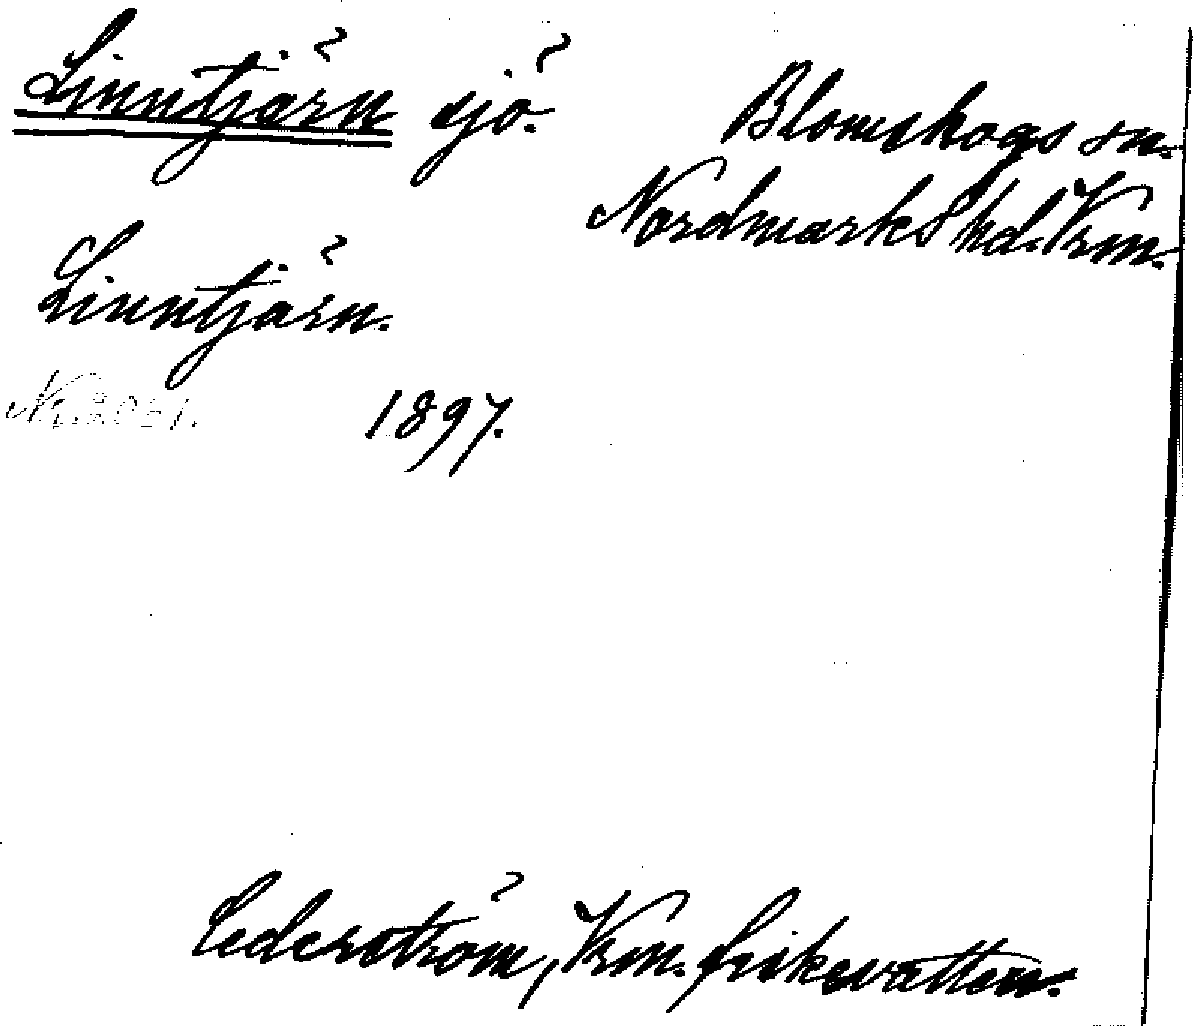 Linntjärn sjö.
Blomskogs sn.
Nordmarks hd. Vrm.
Linntjärn.
1897.
Cederström, Vrm. fiskevatten.